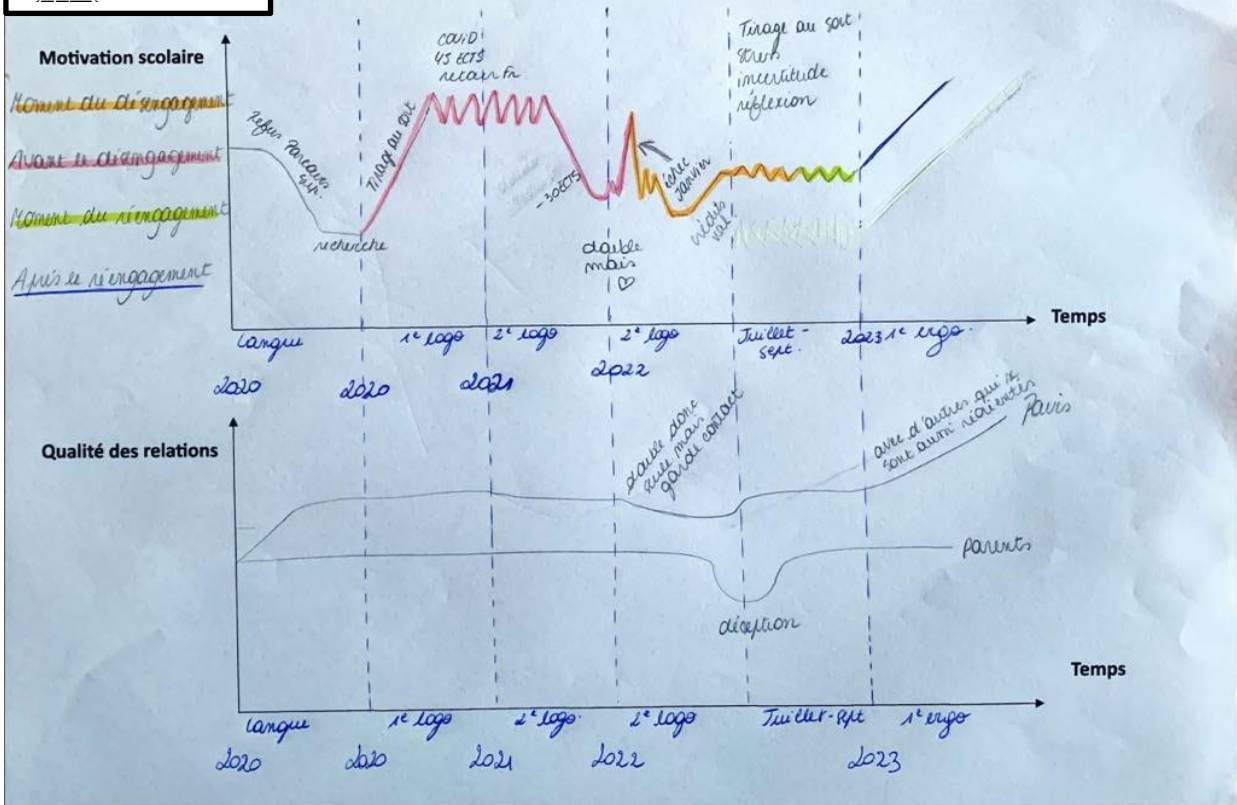 Motivation scolaire
Moment du désengagement
Avant le désengagement
Moment du réengagement
Après le réengagement
Refus Parcours
sup.
recherche
Tirage au sort
COVID
45 ECTS
-30 ECTS
double
mais
♡
échec
Janvier
crédits
val.
Tirage au sort
stress
incertitude
réflexion
Temps
Langue
1e logo
2e logo
2e logo
Juillet -
sept.
1e ergo.
2020
2020
2021
2022
2023
Qualité des relations
double donc
seule mais
garde contact
avec d'autres qui se
sont aussi réorientés
Pairs
parents
déception
Temps
Langue
1e logo
2e logo.
2e logo
Juillet-sept
1e ergo
2020
2020
2021
2022
2023